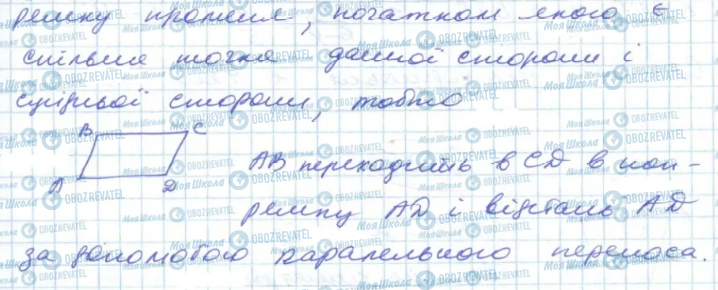 рямку променя, початком якого є
спільна точка даної сторони і
сусідньої сторони, тобто
B C
A D
AB переходить в CD в нап-
рямку AD і відстань AD
за допомогою паралельного переноса.